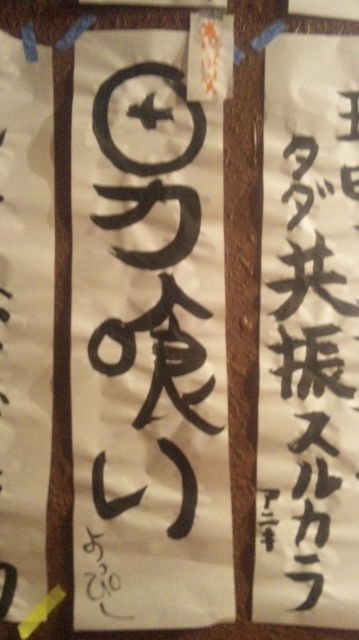 タダ共振スルカラ
アニキ
男喰い
よっぴー